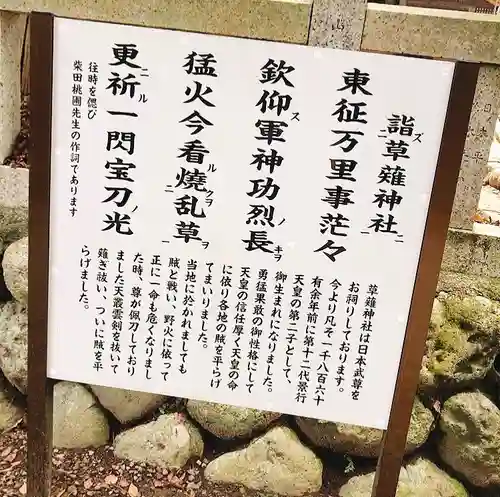 詣ズ草薙神社ニ
東征万里事茫々
欽仰ス軍神功烈ノ長キヲ
猛火今看ル燒クヲ乱草ヲ
更ニ祈ル一閃宝刀ノ光
往時を偲び
柴田桃圃先生の作詞であります
草薙神社は日本武尊を
お祠りしております。
今より凡そ一千八百六十
有余年前に第十二代景行
天皇の第二子として、
御生まれになりました。
勇猛果敢の御性格にして
天皇の信任厚く天皇の命
に依り各地の賊を平らげ
てまいりました。
当地に於かれましても
賊と戦い、野火に依って
正に一命も危くなりまし
た時、尊が佩刀しており
ました天叢雲剣を抜いて
薙ぎ祓い、ついに賊を平
らげました。